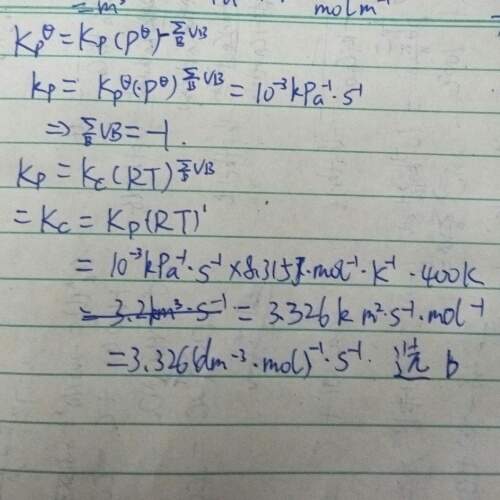 = m³ mol m⁻
Kp^θ = Kp(p^θ)^-∑_B VB
kp = Kp^θ(·p^θ)^∑_B VB = 10⁻³ kPa⁻¹·s⁻¹
⇒ ∑_B VB = -1.
Kp = Kc(RT)^∑_B VB
= Kc = Kp(RT)¹
= 10⁻³ kPa⁻¹·s⁻¹ × 8.315 J·mol⁻¹·K⁻¹·400K
= 3.326 k m²·s⁻¹·mol⁻¹
= 3.326 (dm⁻³·mol)⁻¹·s⁻¹. 选 b